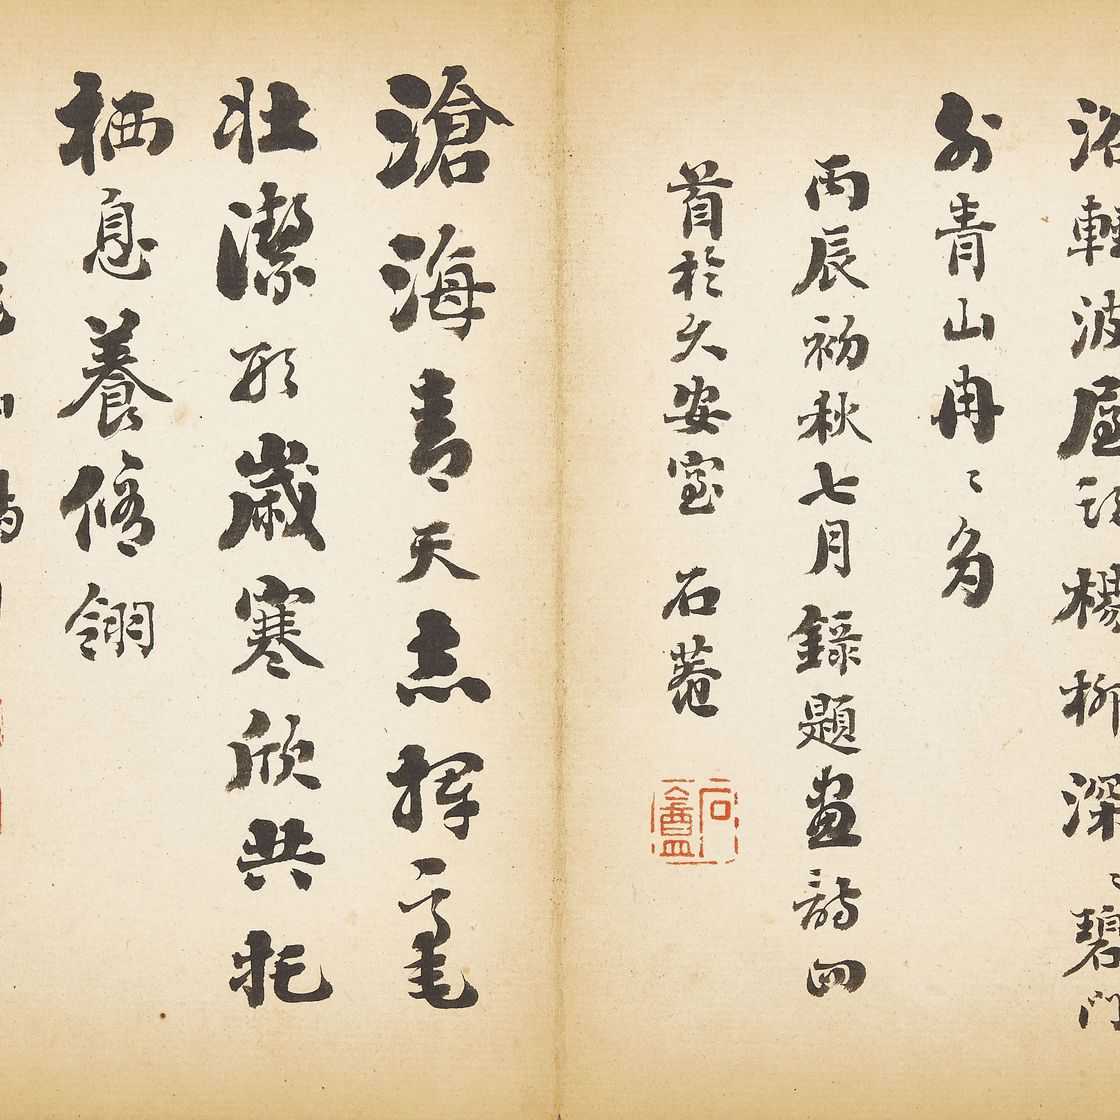 波楊柳深〻碧門
外青山冉〻多
丙辰初秋七月錄題畫詩四
首於久安室 石菴
石盦
滄海青天志揮毫
壯潔形歲寒欣共托
栖息養修翎